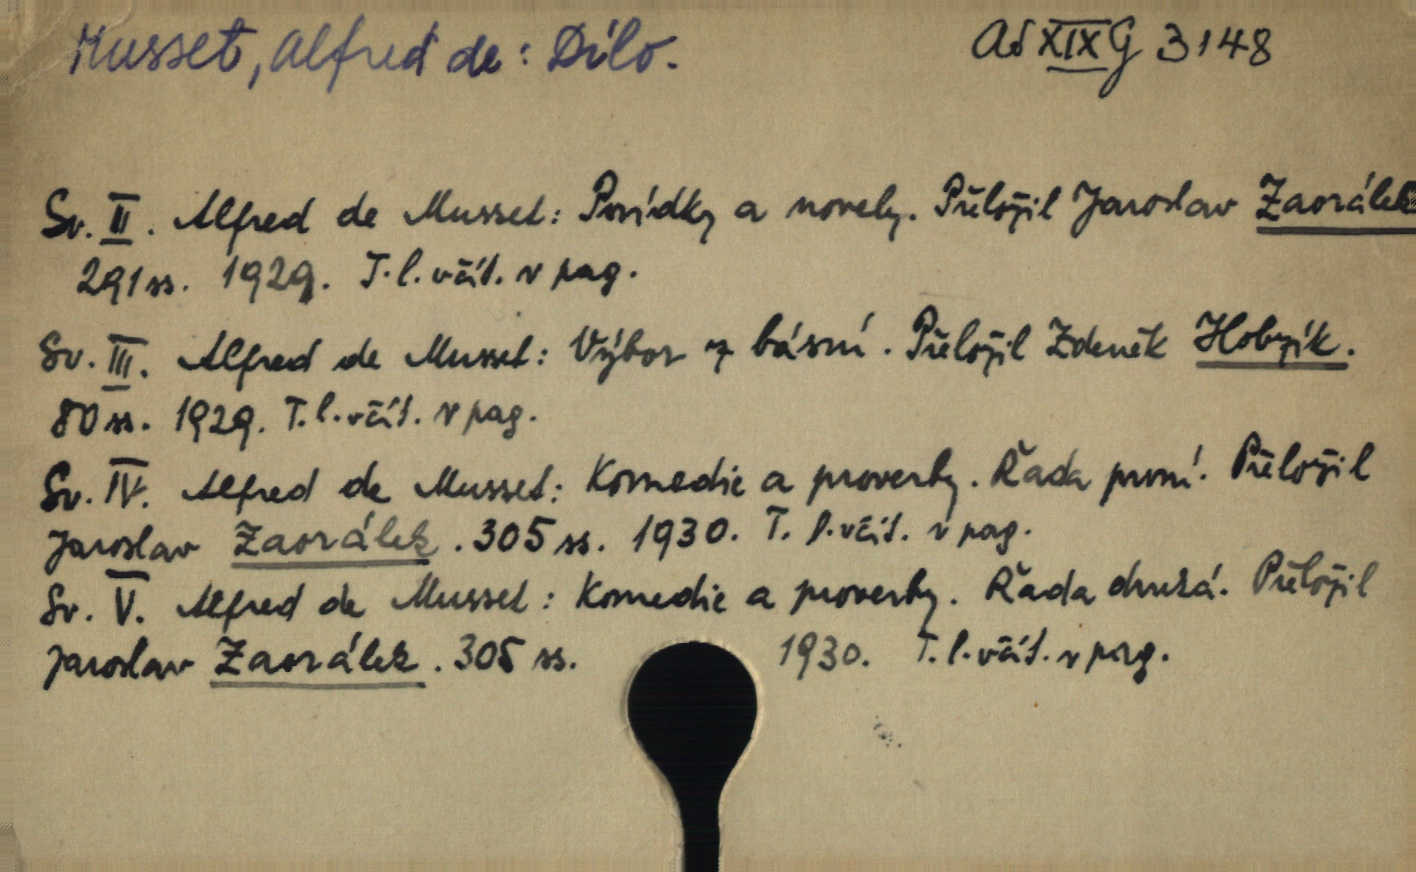 Musset, Alfred de: Dílo.
Ad XIX G 3148
Sv. II. Alfred de Musset: Povídky a novely. Přeložil Jaroslav Zaorálek
291 ss. 1929. T.l. včít. v pag.
Sv. III. Alfred de Musset: Výbor z básní. Přeložil Zdeněk Hobzík.
80 ss. 1929. T.l. včít. v pag.
Sv. IV. Alfred de Musset: Komedie a proverby. Řada první. Přeložil
Jaroslav Zaorálek. 305 ss. 1930. T. l. včít. v pag.
Sv. V. Alfred de Musset: Komedie a proverby. Řada druhá. Přeložil
Jaroslav Zaorálek. 305 ss. 1930. T.l. včít. v pag.